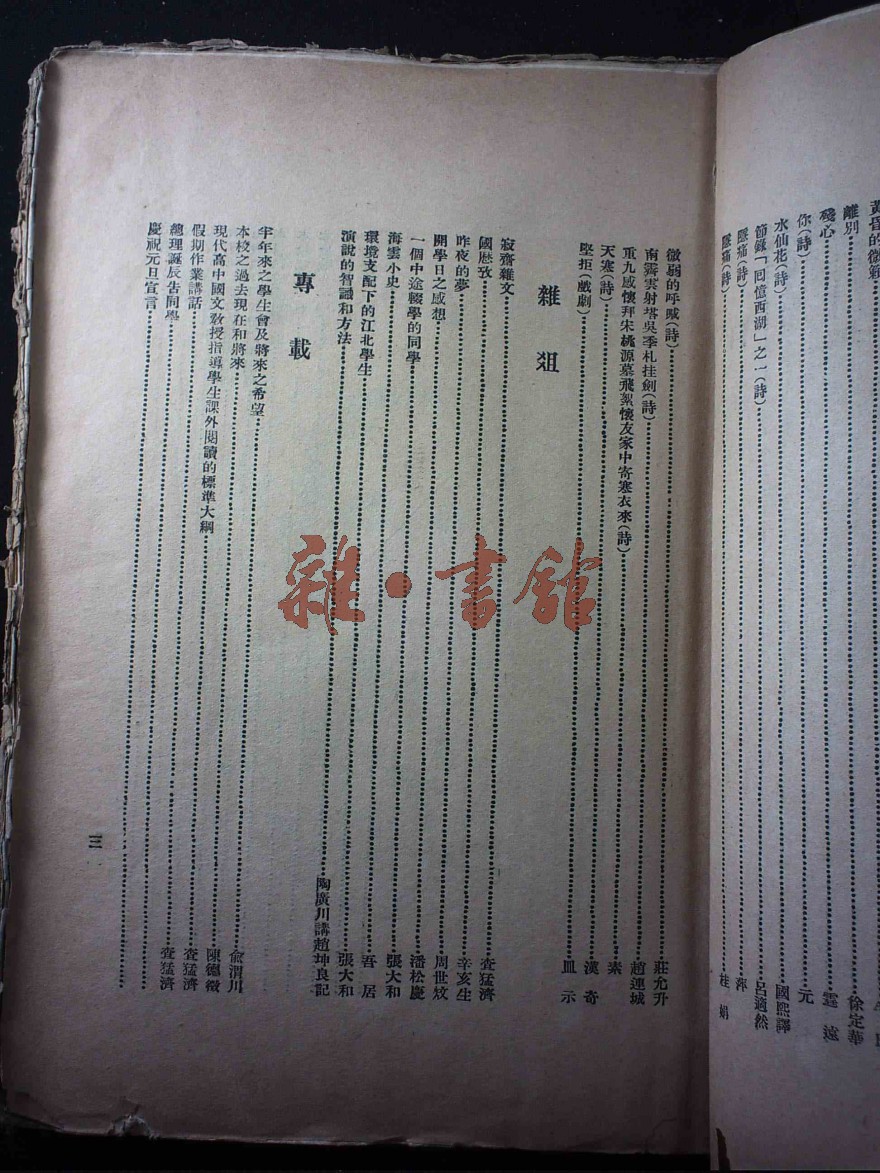 離別 徐定華
殘心 雲遠
你(詩) 元
水仙花(詩) 國熙譯
節錄「回憶西湖」之一(詩) 呂適然
隱痛(詩) 萍
隱痛(詩) 桂娟
微弱的呼喊(詩) 莊允升
南霽雲射塔吳季札挂劍(詩) 趙連城
重九感懷拜宋桃源墓飛絮懷友家中寄寒衣來(詩) 素
天寒(詩) 漢奇
堅拒(戲劇) 皿示
雜俎
寂齋雜文 查猛濟
國歷攷 辛亥生
昨夜的夢 周世炆
開學日之感想 潘松慶
一個中途輟學的同學 張大和
海雲小史 吾居
環境支配下的江北學生 張大和
演說的智識和方法 陶廣川講趙坤良記
專載
半年來之學生會及將來之希望 俞渭川
本校之過去現在和將來 陳德徵
現代高中國文教授指導學生課外閱讀的標準大綱 查猛濟
假期作業講話 查猛濟
總理誕辰告同學
慶祝元旦宣言
三
雜·書館